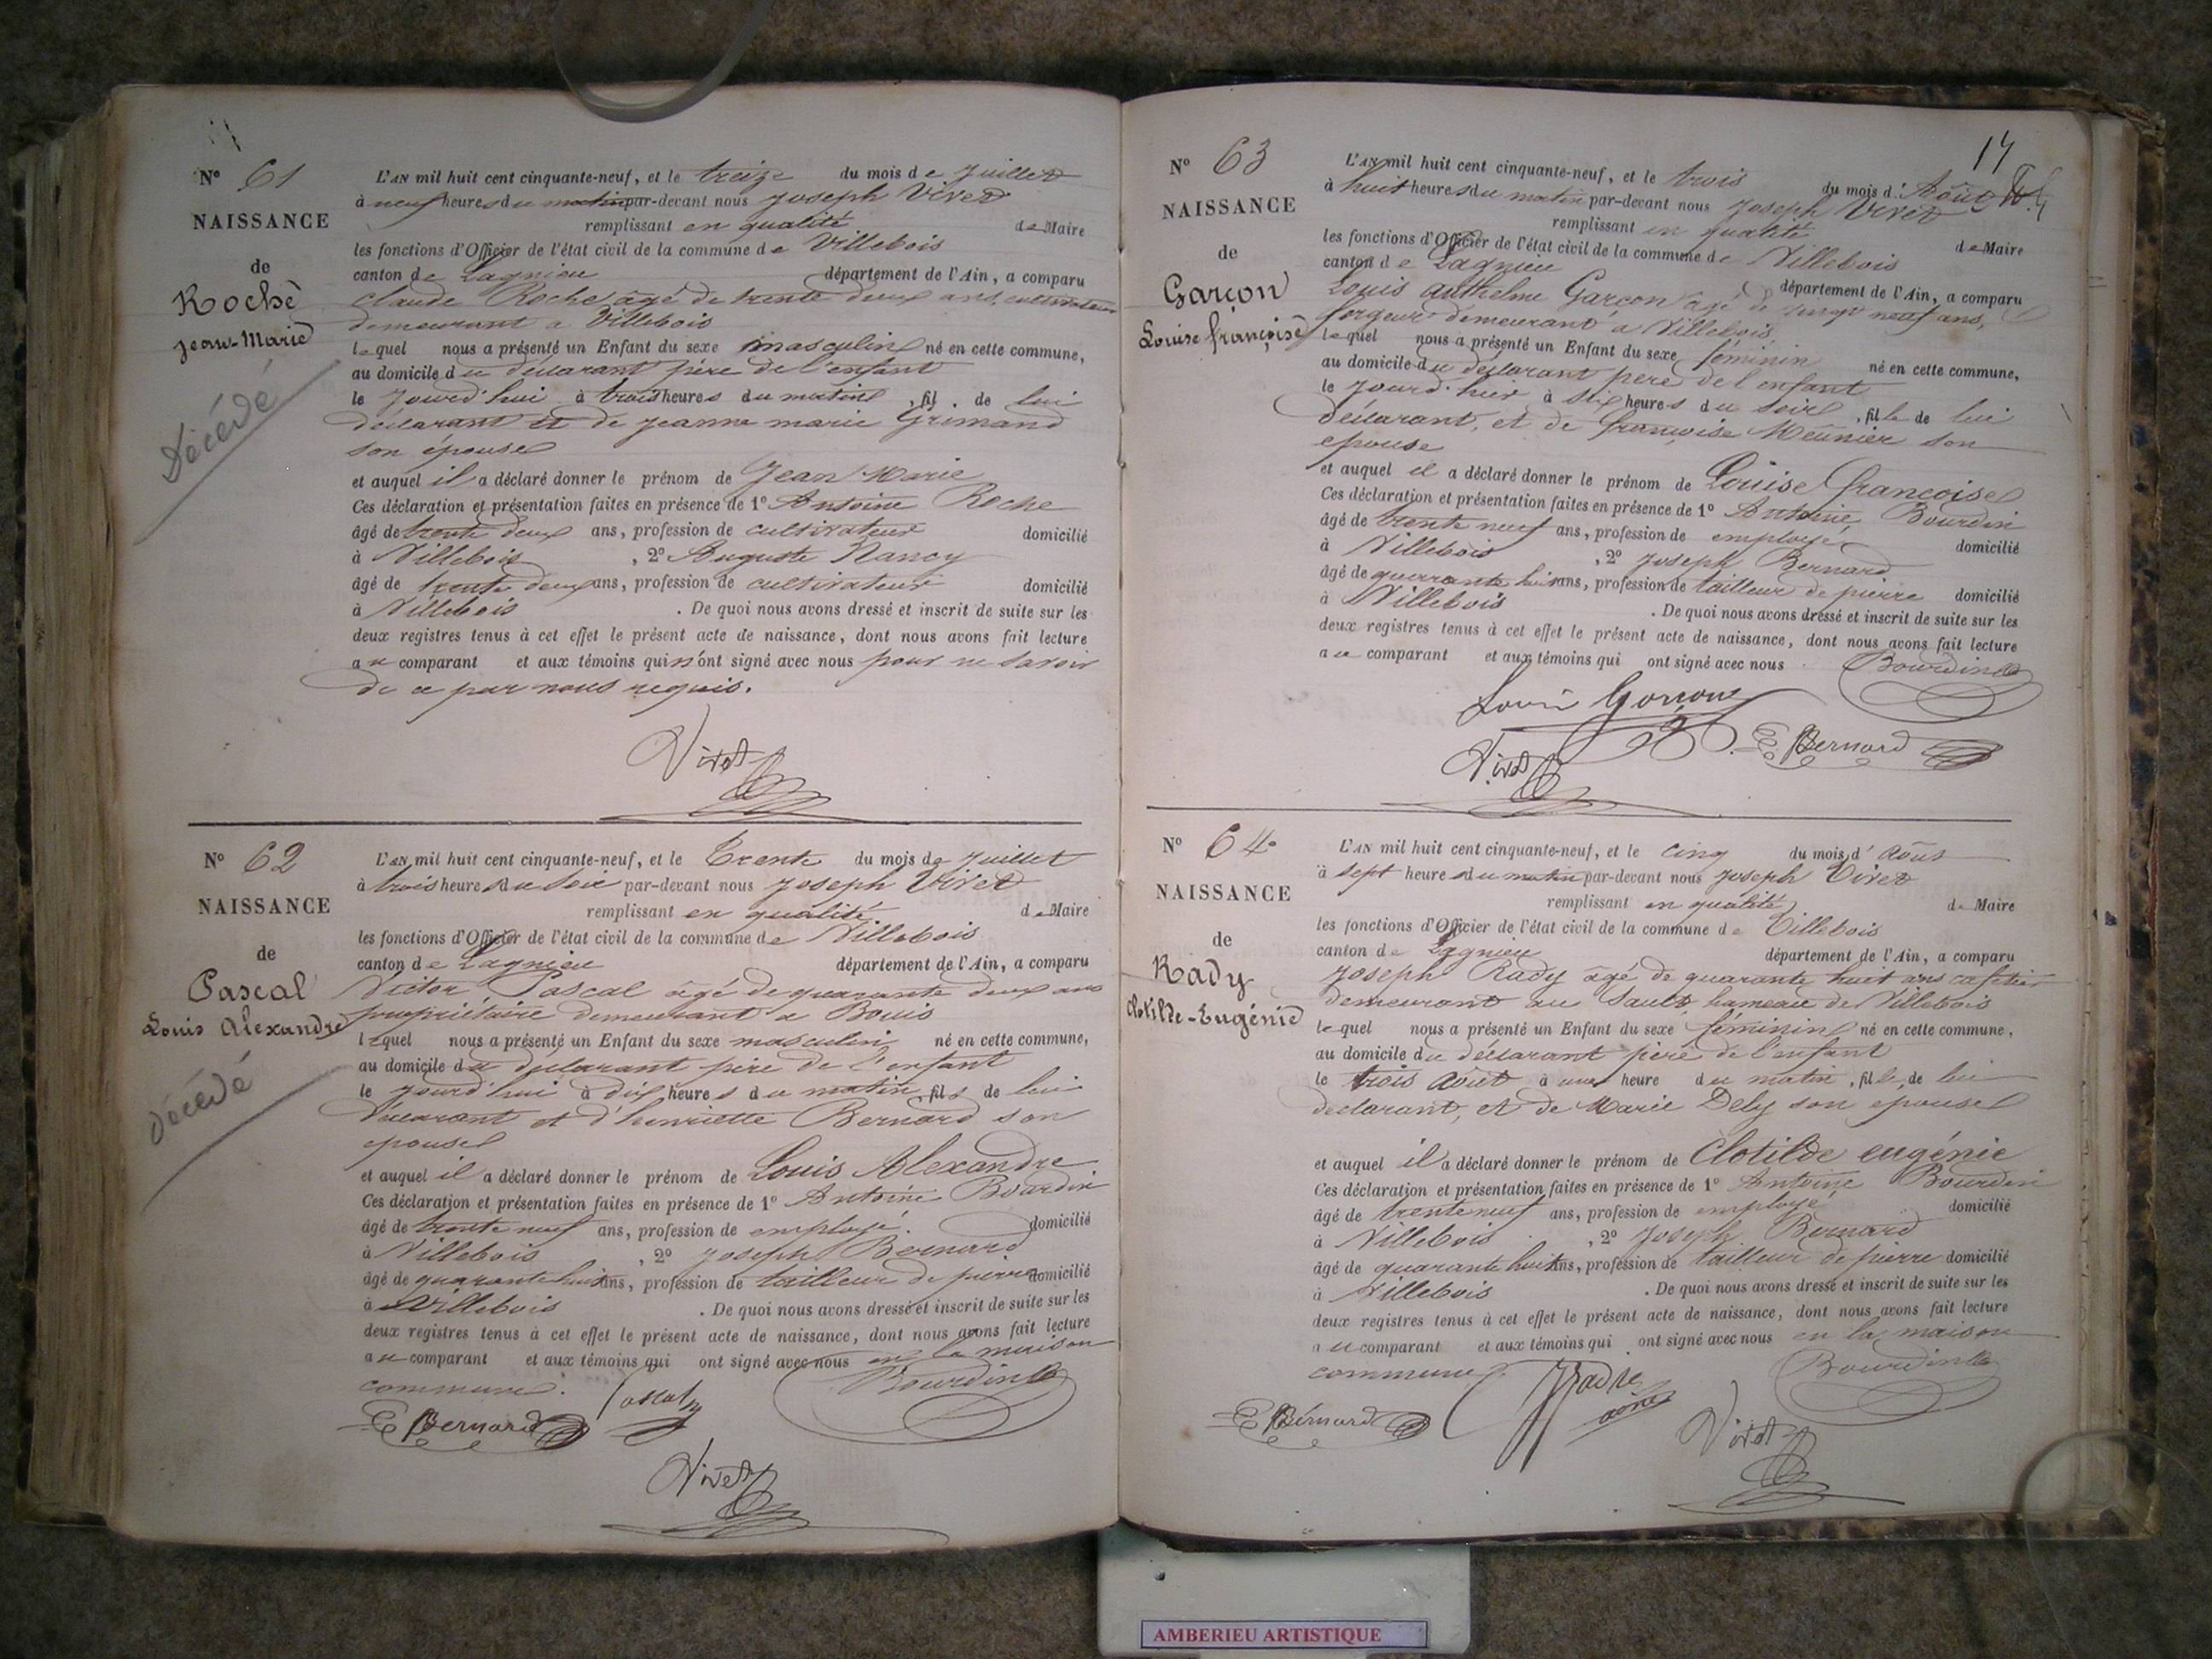 Nº 61
NAISSANCE
de
Roche
Jean-Marie
Décédé
L'AN mil huit cent cinquante-neuf, et le treize du mois de Juillet
à neuf heures du matin par-devant nous Joseph Vivet
remplissant en qualité de Maire
les fonctions d'Officier de l'état civil de la commune de Villebois
canton de Lagnieu département de l'Ain, a comparu
Claude Roche âgé de trente deux ans, cultivateur
demeurant a Villebois
lequel nous a présenté un Enfant du sexe masculin né en cette commune,
au domicile du déclarant père de l'enfant
le Jourd'hui à trois heures du matin, fils de lui
déclarant et de Jeanne marie Grimand
son épouse
et auquel il a déclaré donner le prénom de Jean Marie
Ces déclaration et présentation faites en présence de 1º Antoine Roche
âgé de trente deux ans, profession de cultivateur domicilié
à Villebois, 2º Auguste Nancy
âgé de trente deux ans, profession de cultivateur domicilié
à Villebois. De quoi nous avons dressé et inscrit de suite sur les
deux registres tenus à cet effet le présent acte de naissance, dont nous avons fait lecture
au comparant et aux témoins qui n'ont signé avec nous pour ne savoir
de ce par nous requis.
Vivet
Nº 62
NAISSANCE
de
Pascal
Louis Alexandre
décédé
L'AN mil huit cent cinquante-neuf, et le Trente du mois de Juillet
à trois heures du soir par-devant nous Joseph Vivet
remplissant en qualité de Maire
les fonctions d'Officier de l'état civil de la commune de Villebois
canton de Lagnieu département de l'Ain, a comparu
Victor Pascal âgé de quarante deux ans
propriétaire demeurant a Bouis
lequel nous a présenté un Enfant du sexe masculin né en cette commune,
au domicile du déclarant père de l'enfant
le jourd'hui à dix heures du matin, fils de lui
déclarant et d'henriette Bernard son
epouse
et auquel il a déclaré donner le prénom de Louis Alexandre
Ces déclaration et présentation faites en présence de 1º Antoine Bourdin
âgé de trente neuf ans, profession de employé. domicilié
à Villebois, 2º Joseph Bernard
âgé de quarante huit ans, profession de tailleur de pierre domicilié
à Villebois. De quoi nous avons dressé et inscrit de suite sur les
deux registres tenus à cet effet le présent acte de naissance, dont nous avons fait lecture
au comparant et aux témoins qui ont signé avec nous en la maison
commune. Pascal Bourdin
Bernard
Vivet
14
Nº 63
NAISSANCE
de
Garçon
Louise françoise
L'AN mil huit cent cinquante-neuf, et le trois du mois d'Août
à huit heures du matin par-devant nous Joseph Vivet
remplissant en qualité de Maire
les fonctions d'Officier de l'état civil de la commune de Villebois
canton de Lagnieu département de l'Ain, a comparu
Louis Anthelme Garçon âgé de vingt neuf ans,
forgeur demeurant a Villebois
lequel nous a présenté un Enfant du sexe féminin né en cette commune,
au domicile du déclarant pere de l'enfant
le Jourd'hier à six heures du soir, fille de lui
déclarant, et de françoise Meunier son
epouse
et auquel il a déclaré donner le prénom de Louise francoise
Ces déclaration et présentation faites en présence de 1º Antoine Bourdin
âgé de trente neuf ans, profession de employé domicilié
à Villebois, 2º Joseph Bernard
âgé de quarante huit ans, profession de tailleur de pierre domicilié
à Villebois. De quoi nous avons dressé et inscrit de suite sur les
deux registres tenus à cet effet le présent acte de naissance, dont nous avons fait lecture
au comparant et aux témoins qui ont signé avec nous Bourdin
Louis Garçon
Bernard
Vivet
Nº 64
NAISSANCE
de
Rady
Clotilde-Eugénie
L'AN mil huit cent cinquante-neuf, et le cinq du mois d'août
à sept heures du matin par-devant nous Joseph Vivet
remplissant en qualité de Maire
les fonctions d'Officier de l'état civil de la commune de Villebois
canton de Lagnieu département de l'Ain, a comparu
Joseph Rady âgé de quarante huit ans cafetier
demeurant au Sault, hameau de Villebois
lequel nous a présenté un Enfant du sexe féminin né en cette commune,
au domicile du déclarant père de l'enfant
le trois août à une heure du matin, fille de lui
déclarant, et de Marie Dely son epouse
et auquel il a déclaré donner le prénom de Clotilde eugénie
Ces déclaration et présentation faites en présence de 1º Antoine Bourdin
âgé de trente neuf ans, profession de employé domicilié
à Villebois, 2º Joseph Bernard
âgé de quarante huit ans, profession de tailleur de pierre domicilié
à Villebois. De quoi nous avons dressé et inscrit de suite sur les
deux registres tenus à cet effet le présent acte de naissance, dont nous avons fait lecture
au comparant et aux témoins qui ont signé avec nous en la maison
commune. Bourdin
Bernard
Vivet
AMBERIEU ARTISTIQUE